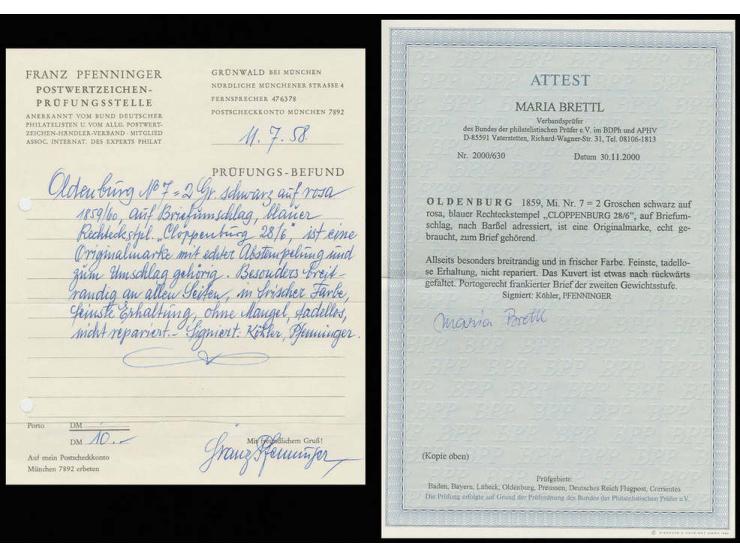 FRANZ PFENNINGER
POSTWERTZEICHEN-
PRÜFUNGSSTELLE
ANERKANNT VOM BUND DEUTSCHER
PHILATELISTEN U. VOM ALLG. POSTWERT-
ZEICHEN-HÄNDLER-VERBAND · MITGLIED
ASSOC. INTERNAT. DES EXPERTS PHILAT
GRÜNWALD BEI MÜNCHEN
NÖRDLICHE MÜNCHENER STRASSE 4
FERNSPRECHER 476378
POSTSCHECKKONTO MÜNCHEN 7892
11. 7. 58
PRÜFUNGS-BEFUND
Oldenburg No 7 = 2 Gr. schwarz auf rosa
1859/60, auf Briefumschlag, blauer
Rechteckstpl. "Cloppenburg 28/6", ist eine
Originalmarke mit echter Abstempelung und
zum Umschlag gehörig. Besonders breit-
randig an allen Seiten, in frischer Farbe,
feinste Erhaltung, ohne Mängel, tadellos,
nicht repariert. - Signiert: Köhler, Pfenninger.
Porto DM
DM 10.-
Auf mein Postscheckkonto
München 7892 erbeten
Mit freundlichem Gruß!
Franz Pfenninger
ATTEST
MARIA BRETTL
Verbandsprüfer
des Bundes der philatelistischen Prüfer e.V. im BDPh und APHV
D-85591 Vaterstetten, Richard-Wagner-Str. 31, Tel. 08106-1813
Nr. 2000/630 Datum 30.11.2000
OLDENBURG 1859, Mi. Nr. 7 = 2 Groschen schwarz auf
rosa, blauer Rechteckstempel „CLOPPENBURG 28/6", auf Briefum-
schlag, nach Barßel adressiert, ist eine Originalmarke, echt ge-
braucht, zum Brief gehörend.
Allseits besonders breitrandig und in frischer Farbe. Feinste, tadello-
se Erhaltung, nicht repariert. Das Kuvert ist etwas nach rückwärts
gefaltet. Portogerecht frankierter Brief der zweiten Gewichtsstufe.
Signiert: Köhler, PFENNINGER
Maria Brettl
(Kopie oben)
Prüfgebiete:
Baden, Bayern, Lübeck, Oldenburg, Preussen, Deutsches Reich Flugpost, Corrientes
Die Prüfung erfolgte auf Grund der Prüfordnung des Bundes der Philatelistischen Prüfer e.V.